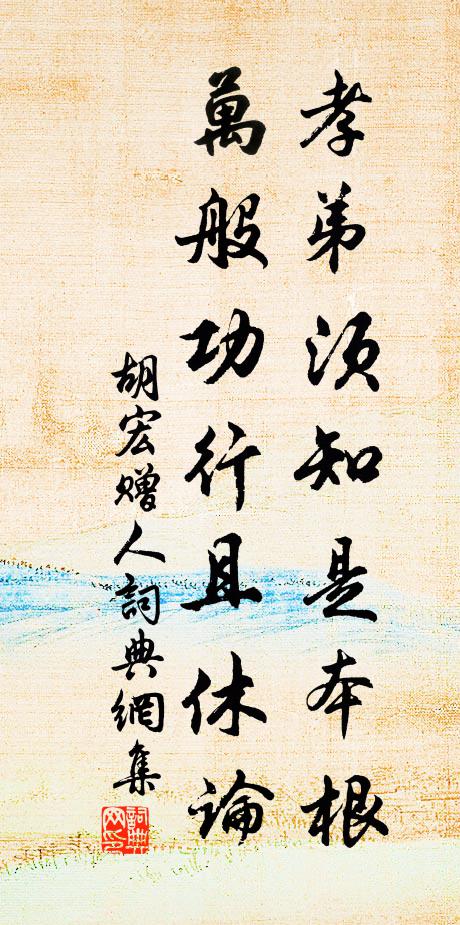 孝弟須知是本根
萬般功行且休論
胡宏贈人詞典網集